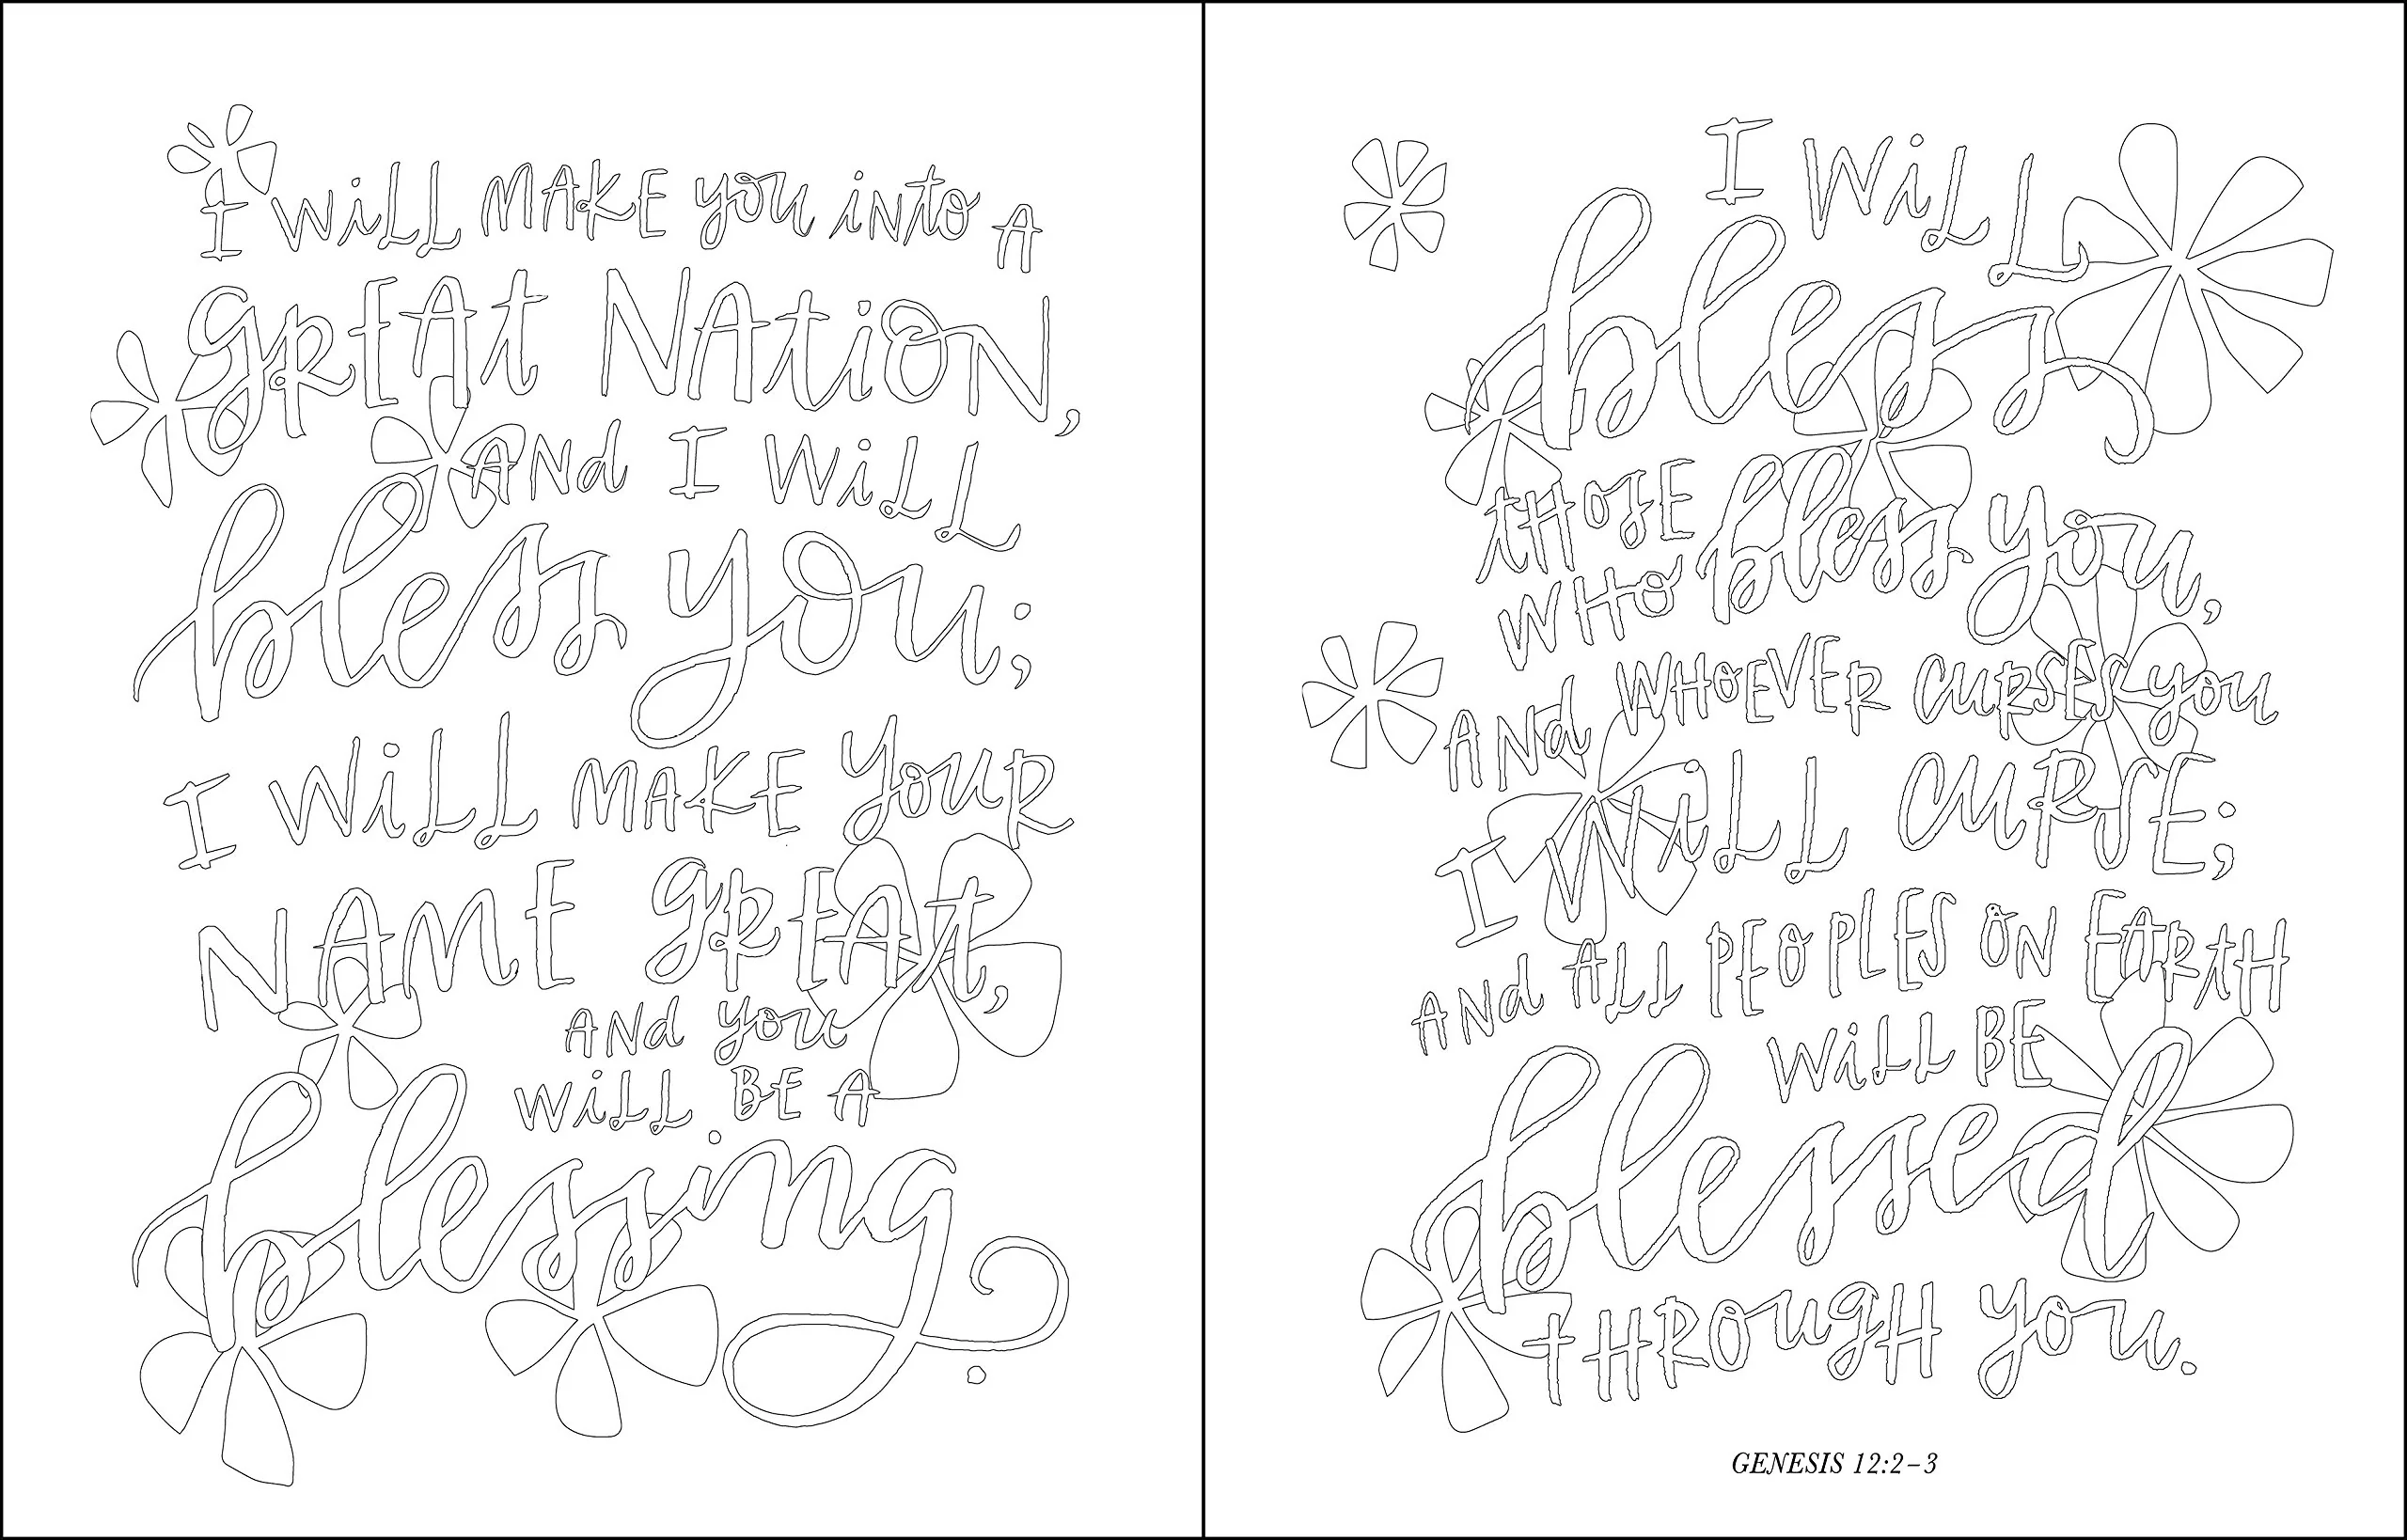 I WILL MAKE you INTO A
GREAT NATION,
AND I WILL
bless you;
I WILL MAKE YOUR
NAME GREAT,
AND you
WILL BE A
blessing.
I WILL
bless
THOSE
WHO bless you,
AND WHOEVER CURSES you
I WILL CURSE;
AND ALL PEOPLES ON EARTH
WILL BE
blessed
THROUGH you.
GENESIS 12:2–3